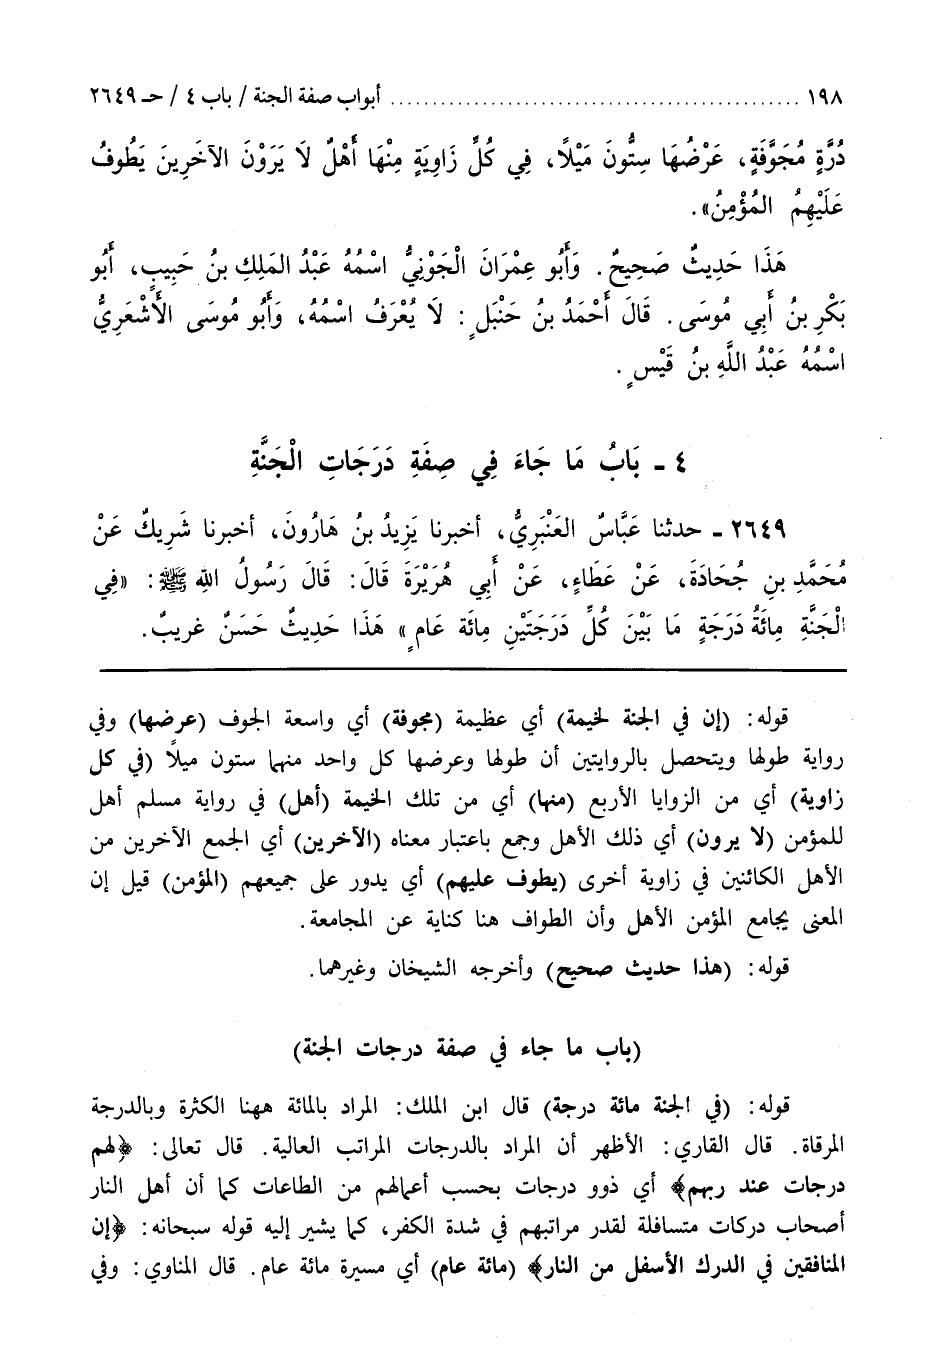 ١٩٨ ................................................ أبواب صفة الجنة / باب ٤ / حـ ٢٦٤٩
دُرَّةٍ مُجَوَّفَةٍ، عَرْضُهَا سِتُّونَ مَيْلاً، فِي كُلِّ زَاوِيَةٍ مِنْهَا أَهْلٌ لاَ يَرَوْنَ الآخَرِينَ يَطُوفُ
عَلَيْهِمُ المُؤْمِنُ».
هَذَا حَدِيثٌ صَحِيحٌ. وَأَبُو عِمْرَانَ الْجَوْنِيُّ اسْمُهُ عَبْدُ المَلِكِ بنُ حَبِيبٍ، أَبُو
بَكْرِ بنُ أَبِي مُوسَى. قَالَ أَحْمَدُ بنُ حَنْبَلٍ: لاَ يُعْرَفُ اسْمُهُ، وَأَبُو مُوسَى الأَشْعَرِيُّ
اسْمُهُ عَبْدُ اللَّهِ بنُ قَيْسٍ.
٤ ـ بَابُ مَا جَاءَ فِي صِفَةِ دَرَجَاتِ الْجَنَّةِ
٢٦٤٩ ـ حدثنا عَبَّاسٌ العَنْبَرِيُّ، أخبرنا يَزِيدُ بنُ هَارُونَ، أخبرنا شَرِيكٌ عَنْ
مُحَمَّدِ بنِ جُحَادَةَ، عَنْ عَطَاءٍ، عَنْ أَبِي هُرَيْرَةَ قَالَ: قَالَ رَسُولُ اللهِ ﷺ: «فِي
الْجَنَّةِ مِائَةُ دَرَجَةٍ مَا بَيْنَ كُلِّ دَرَجَتَيْنِ مِائَة عَامٍ» هَذَا حَدِيثٌ حَسَنٌ غريبٌ.
قوله: (إن في الجنة لخيمة) أي عظيمة (مجوفة) أي واسعة الجوف (عرضها) وفي
رواية طولها ويتحصل بالروايتين أن طولها وعرضها كل واحد منهما ستون ميلاً (في كل
زاوية) أي من الزوايا الأربع (منها) أي من تلك الخيمة (أهل) في رواية مسلم أهل
للمؤمن (لا يرون) أي ذلك الأهل وجمع باعتبار معناه (الآخرين) أي الجمع الآخرين من
الأهل الكائنين في زاوية أخرى (يطوف عليهم) أي يدور على جميعهم (المؤمن) قيل إن
المعنى يجامع المؤمن الأهل وأن الطواف هنا كناية عن المجامعة.
قوله: (هذا حديث صحيح) وأخرجه الشيخان وغيرهما.
(باب ما جاء في صفة درجات الجنة)
قوله: (في الجنة مائة درجة) قال ابن الملك: المراد بالمائة ههنا الكثرة وبالدرجة
المرقاة. قال القاري: الأظهر أن المراد بالدرجات المراتب العالية. قال تعالى: ﴿لهم
درجات عند ربهم﴾ أي ذوو درجات بحسب أعمالهم من الطاعات كما أن أهل النار
أصحاب دركات متسافلة لقدر مراتبهم في شدة الكفر، كما يشير إليه قوله سبحانه: ﴿إن
المنافقين في الدرك الأسفل من النار﴾ (مائة عام) أي مسيرة مائة عام. قال المناوي: وفي